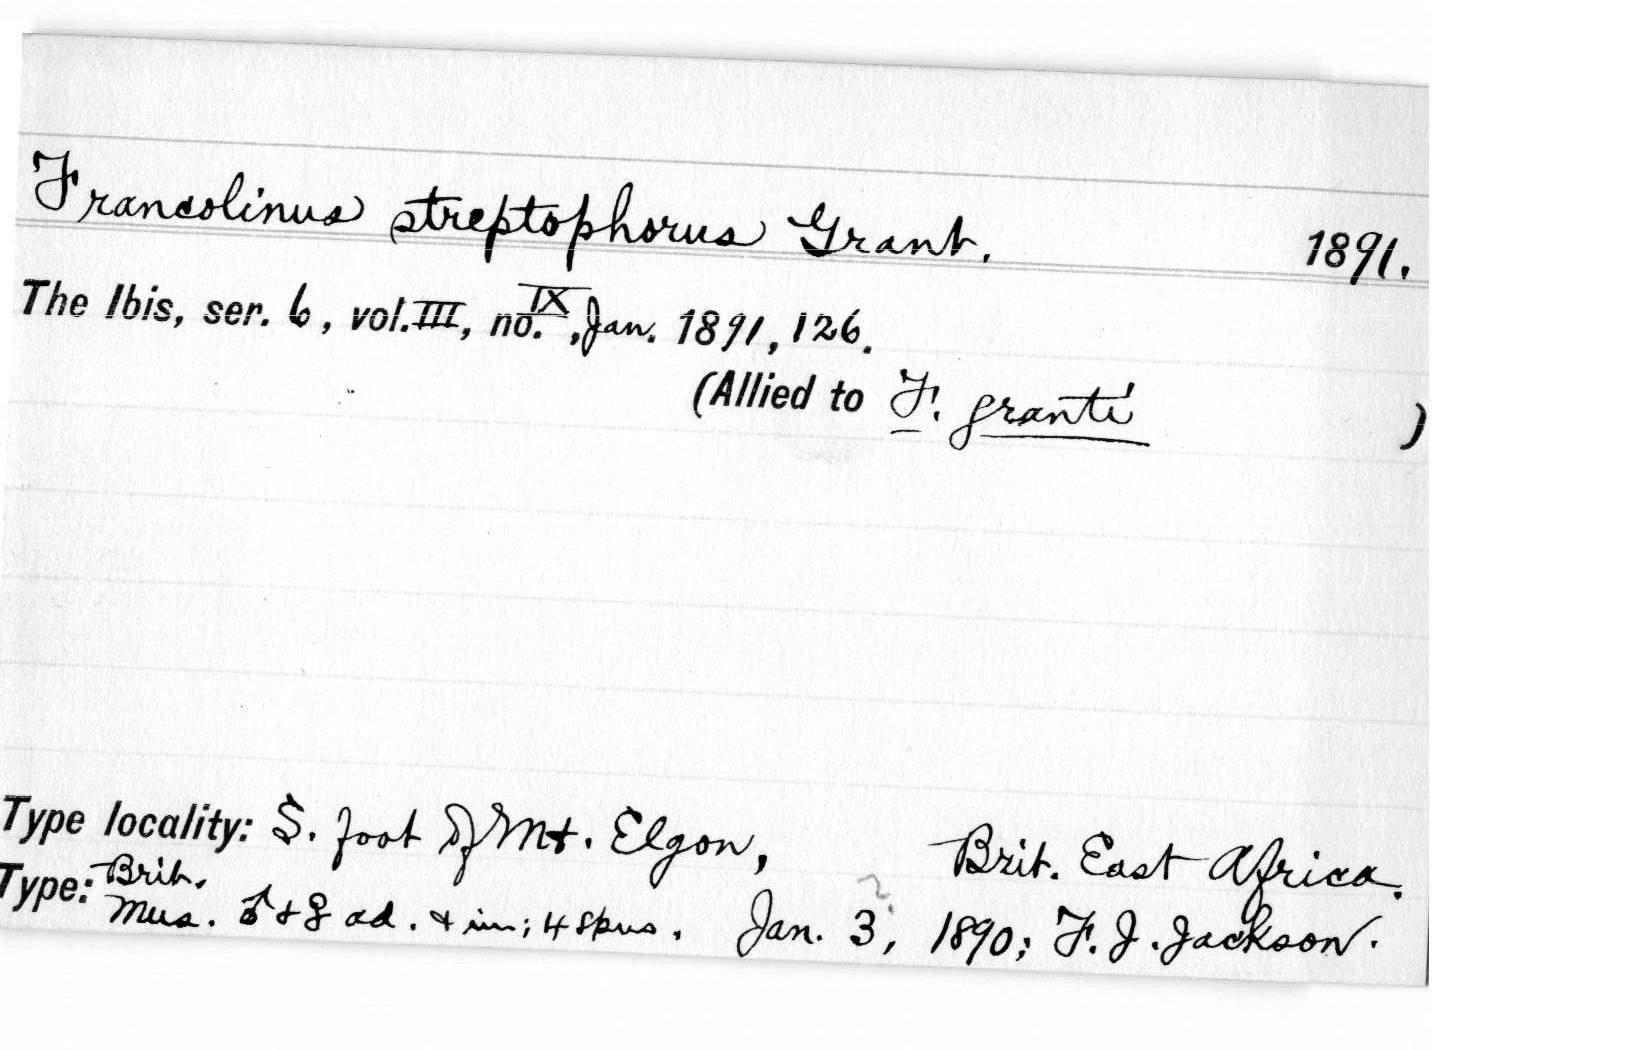 Francolinus streptophorus Grant. 1891.
The Ibis, ser. 6, vol. III, no. IX, Jan. 1891, 126.
(Allied to F. granti )
Type locality: S. foot of Mt. Elgon, Brit. East Africa.
Type: Brit. Mus. ♂ + ♀ ad. + im; 4 spns. Jan. 3?, 1890; F. J. Jackson.